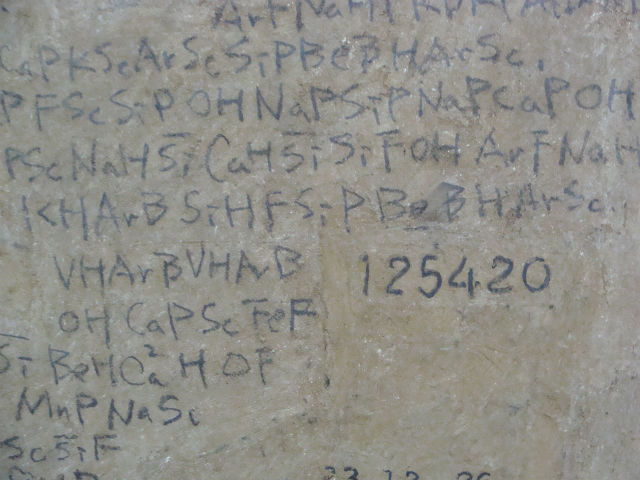 CaPKScArScSiPBeBHArSc.
PFScSiPOHNaPSiPNaPCaPOH
PScNaHSiCaHSiSiFOHArFNaH
KHArBSiHFSiPBeBHArSc.
VHArBVHArB
125420
OHCaPScFeF
SiBeHCa²HOF
MnPNaSi
ScSiF